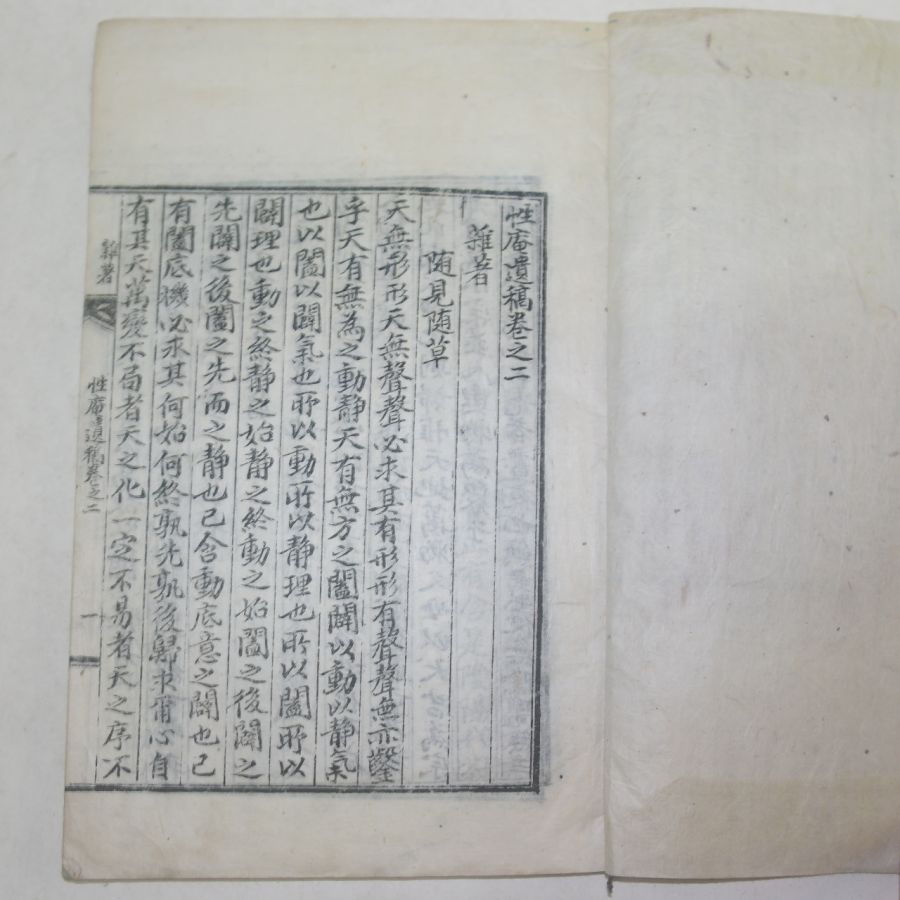 性庵遺稿卷之二
雜著
随見随草
天無形形天無聲聲必求其有形形有聲聲無亦鑿
乎天有無為之動静天有無方之闔闢以動以静氣
也以闔以闢氣也所以動所以静理也所以闔所以
闢理也動之終静之始静之終動之始闔之後闢之
先闢之後闔之先而之静也已含動底意之闢也已
有闔底機必求其何始何終孰先孰後歸求爾心自
有其天萬變不局者天之化一定不易者天之序不
雜著
性庵遺稿卷之二
一